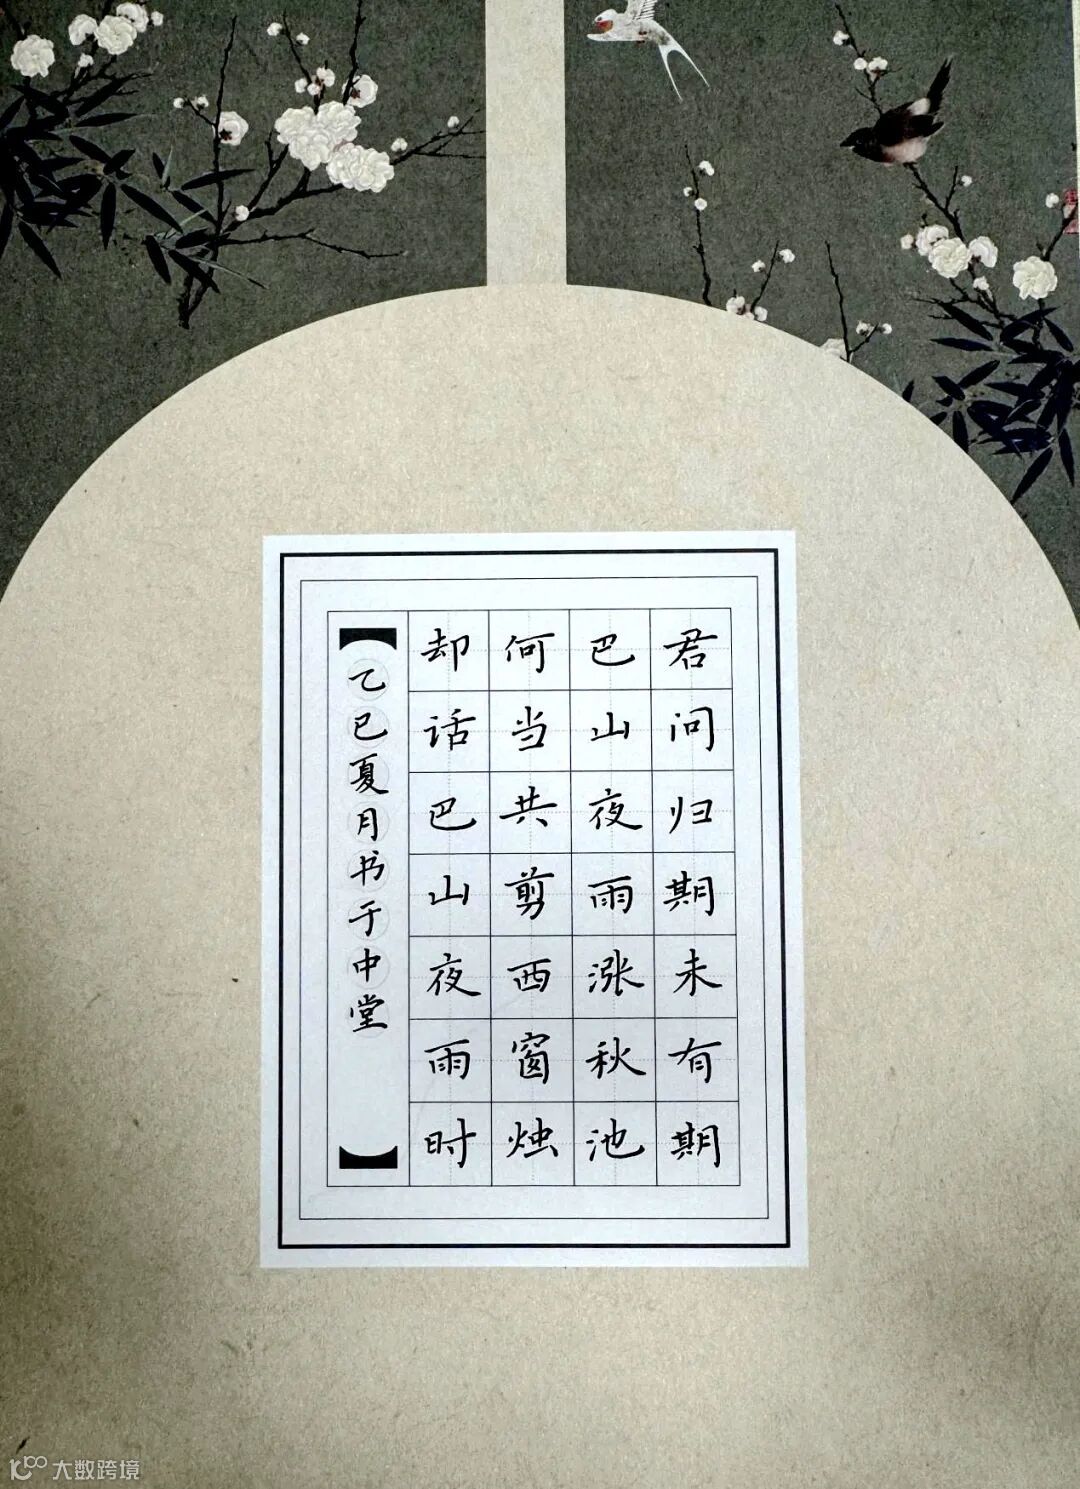 君问归期未有期
巴山夜雨涨秋池
何当共剪西窗烛
却话巴山夜雨时
乙巳夏月书于中堂
大数跨境